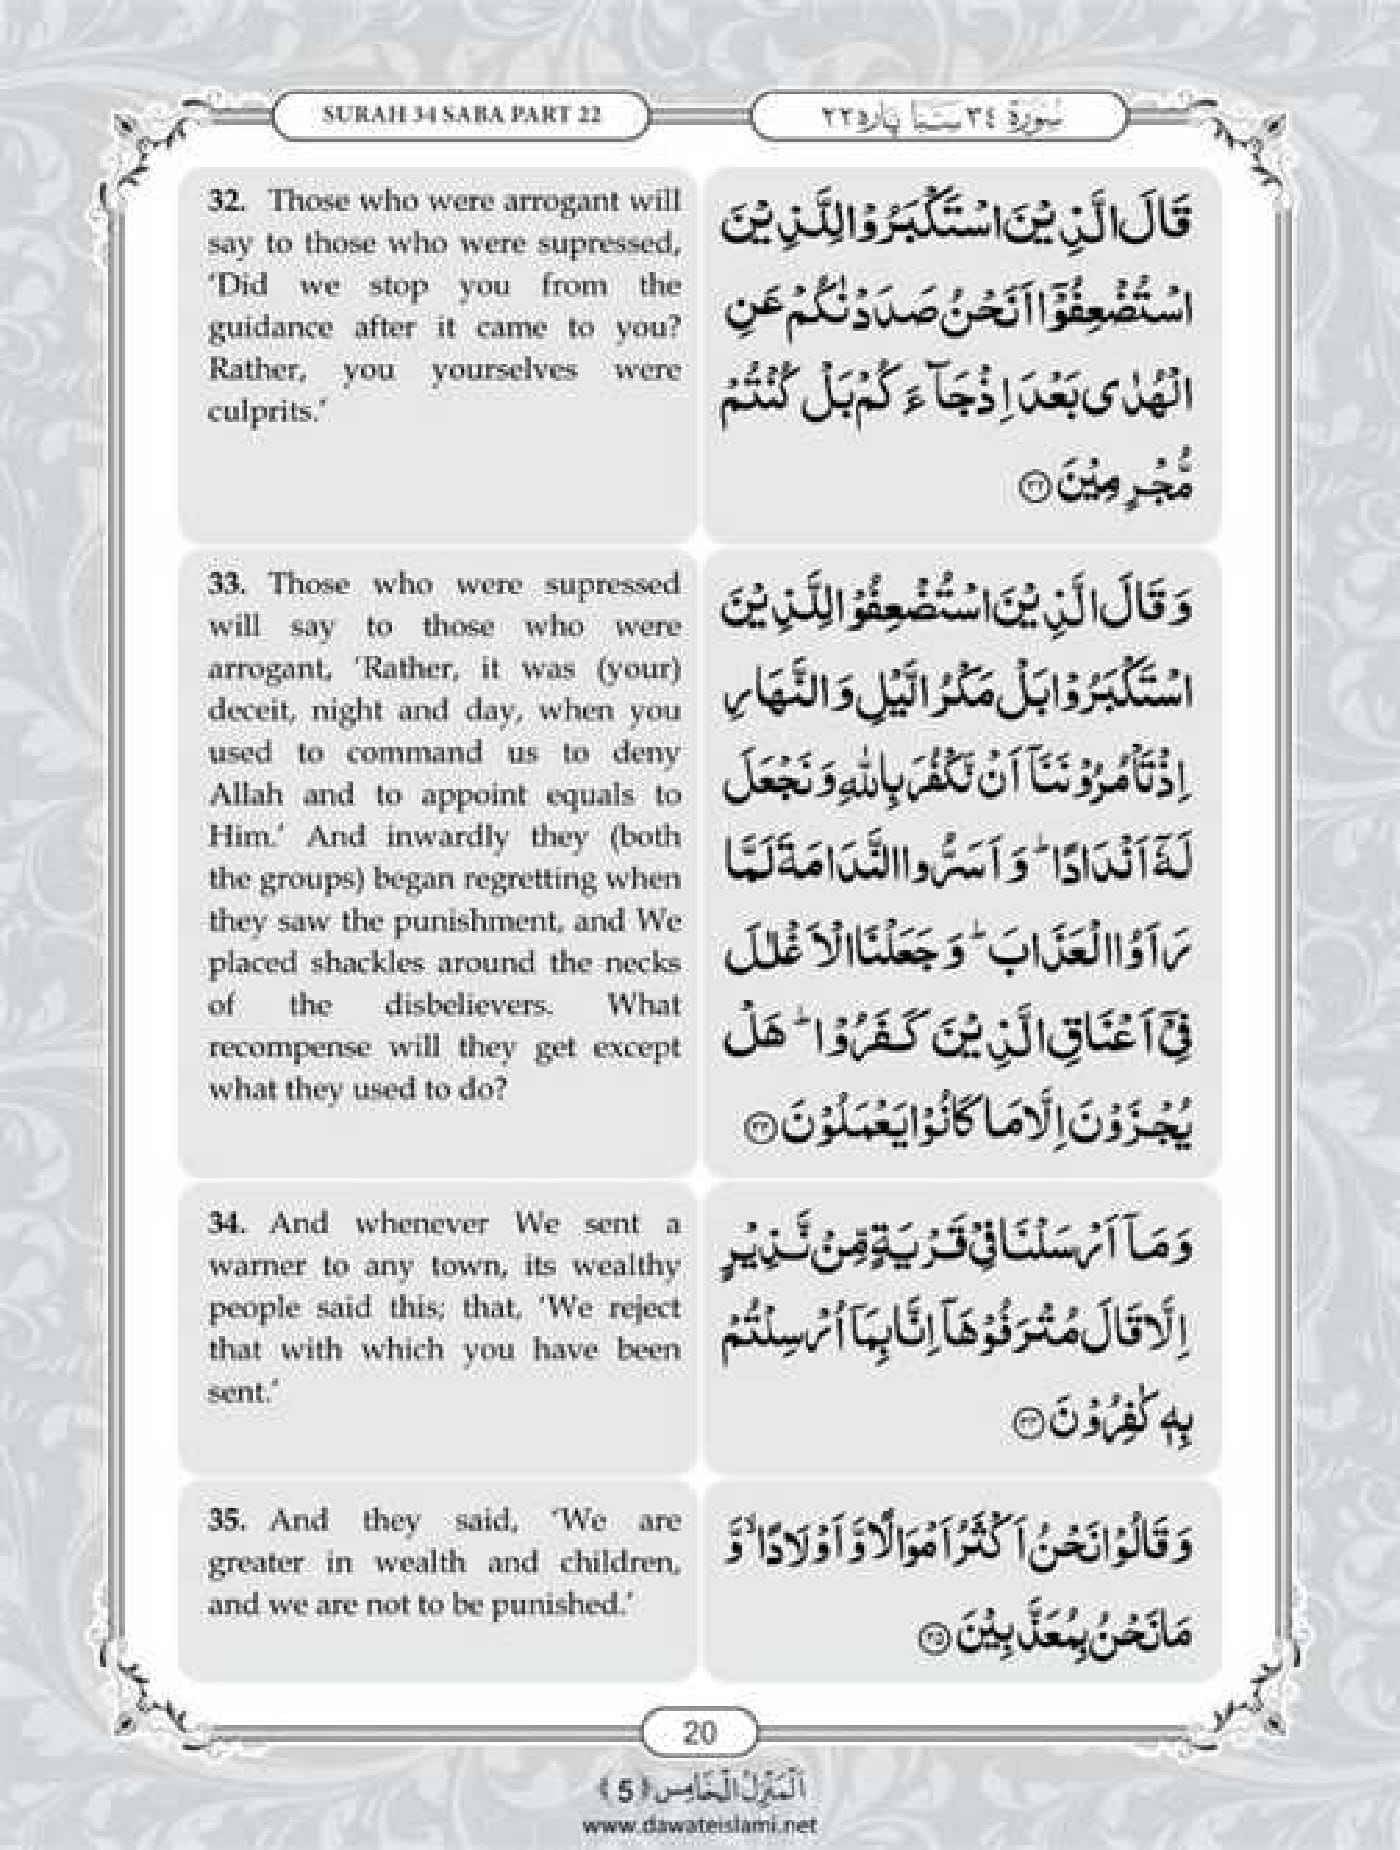 SURAH 34 SABA PART 22
سُوْرَة ٣٤ سَبَا پاره٢٢
32. Those who were arrogant will
say to those who were supressed,
‘Did we stop you from the
guidance after it came to you?
Rather, you yourselves were
culprits.’
قَالَ الَّذِیْنَ اسْتَكْبَرُوْا لِلَّذِیْنَ
اسْتُضْعِفُوْۤا اَنَحْنُ صَدَدْنٰكُمْ عَنِ
الْهُدٰى بَعْدَ اِذْ جَآءَكُمْ بَلْ كُنْتُمْ
مُّجْرِمِیْنَ ﴿۳۲﴾
33. Those who were supressed
will say to those who were
arrogant, ‘Rather, it was (your)
deceit, night and day, when you
used to command us to deny
Allah and to appoint equals to
Him.’ And inwardly they (both
the groups) began regretting when
they saw the punishment, and We
placed shackles around the necks
of the disbelievers. What
recompense will they get except
what they used to do?
وَ قَالَ الَّذِیْنَ اسْتُضْعِفُوْا لِلَّذِیْنَ
اسْتَكْبَرُوْا بَلْ مَكْرُ الَّیْلِ وَ النَّهَارِ
اِذْ تَاْمُرُوْنَنَاۤ اَنْ نَّكْفُرَ بِاللّٰهِ وَ نَجْعَلَ
لَهٗۤ اَنْدَادًاؕ وَ اَسَرُّوا النَّدَامَةَ لَمَّا
رَاَوُا الْعَذَابَؕ وَ جَعَلْنَا الْاَغْلٰلَ
فِیْۤ اَعْنَاقِ الَّذِیْنَ كَفَرُوْاؕ هَلْ
یُجْزَوْنَ اِلَّا مَا كَانُوْا یَعْمَلُوْنَ ﴿۳۳﴾
34. And whenever We sent a
warner to any town, its wealthy
people said this; that, ‘We reject
that with which you have been
sent.’
وَ مَاۤ اَرْسَلْنَا فِیْ قَرْیَةٍ مِّنْ نَّذِیْرٍ
اِلَّا قَالَ مُتْرَفُوْهَاۤ اِنَّا بِمَاۤ اُرْسِلْتُمْ
بِهٖ كٰفِرُوْنَ ﴿۳۴﴾
35. And they said, ‘We are
greater in wealth and children,
and we are not to be punished.’
وَ قَالُوْا نَحْنُ اَكْثَرُ اَمْوَالًا وَّ اَوْلَادًاۙ وَّ
مَا نَحْنُ بِمُعَذَّبِیْنَ ﴿۳۵﴾
20
اَلْمَنْزِلُ الْخَامِس ﴿5﴾
www.dawateislami.net